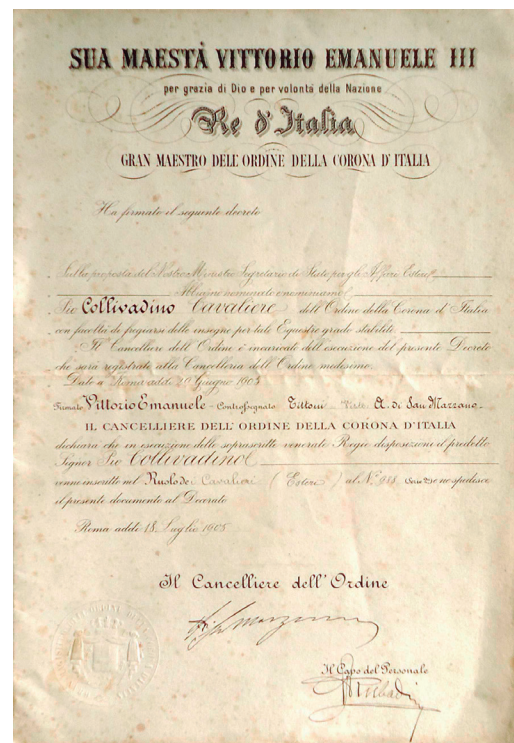 SUA MAESTÀ VITTORIO EMANUELE III
per grazia di Dio e per volontà della Nazione
Re d'Italia
GRAN MAESTRO DELL'ORDINE DELLA CORONA D'ITALIA
Ha firmato il seguente decreto
Sulla proposta del Nostro Ministro Segretario di Stato per gli Affari Esteri
Abbiamo nominato e nominiamo
Pio Collivadino Cavaliere dell'Ordine della Corona d'Italia
con facoltà di fregiarsi delle insegne per tale Equestre grado stabilite.
Il Cancelliere dell'Ordine è incaricato dell'esecuzione del presente Decreto
che sarà registrato alla Cancelleria dell'Ordine medesimo.
Dato a Roma addì 20 Giugno 1905
Firmato Vittorio Emanuele - Controsegnato Tittoni - Visto A. di San Marzano -
IL CANCELLIERE DELL'ORDINE DELLA CORONA D'ITALIA
dichiara che in esecuzione delle soprascritte venerate Regie disposizioni il predetto
Signor Pio Collivadino
venne inscritto nel Ruolo dei Cavalieri (Esteri) al N.º 988 e ne spedisce
il presente documento al Decorato
Roma addì 18 Luglio 1905
Il Cancelliere dell'Ordine
Il Capo del Personale